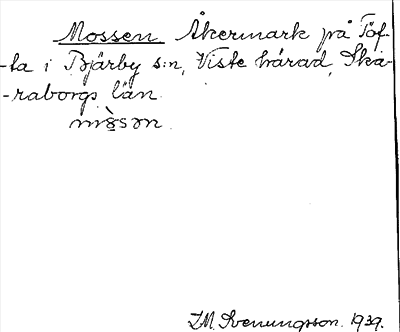 Mossen Åkermark på Töf-
-ta i Bjärby s:n, Viste härad, Ska-
-raborgs län.
J.M. Svenungsson. 1939.